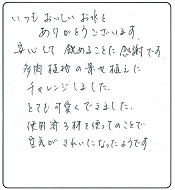 いつもおいしいお水を
ありがとうございます。
安心して飲めることに感謝です
多肉植物の寄せ植えに
チャレンジしました。
とても可愛くできました。
使用済み材を使ってのことで
空気がきれいになったようです。